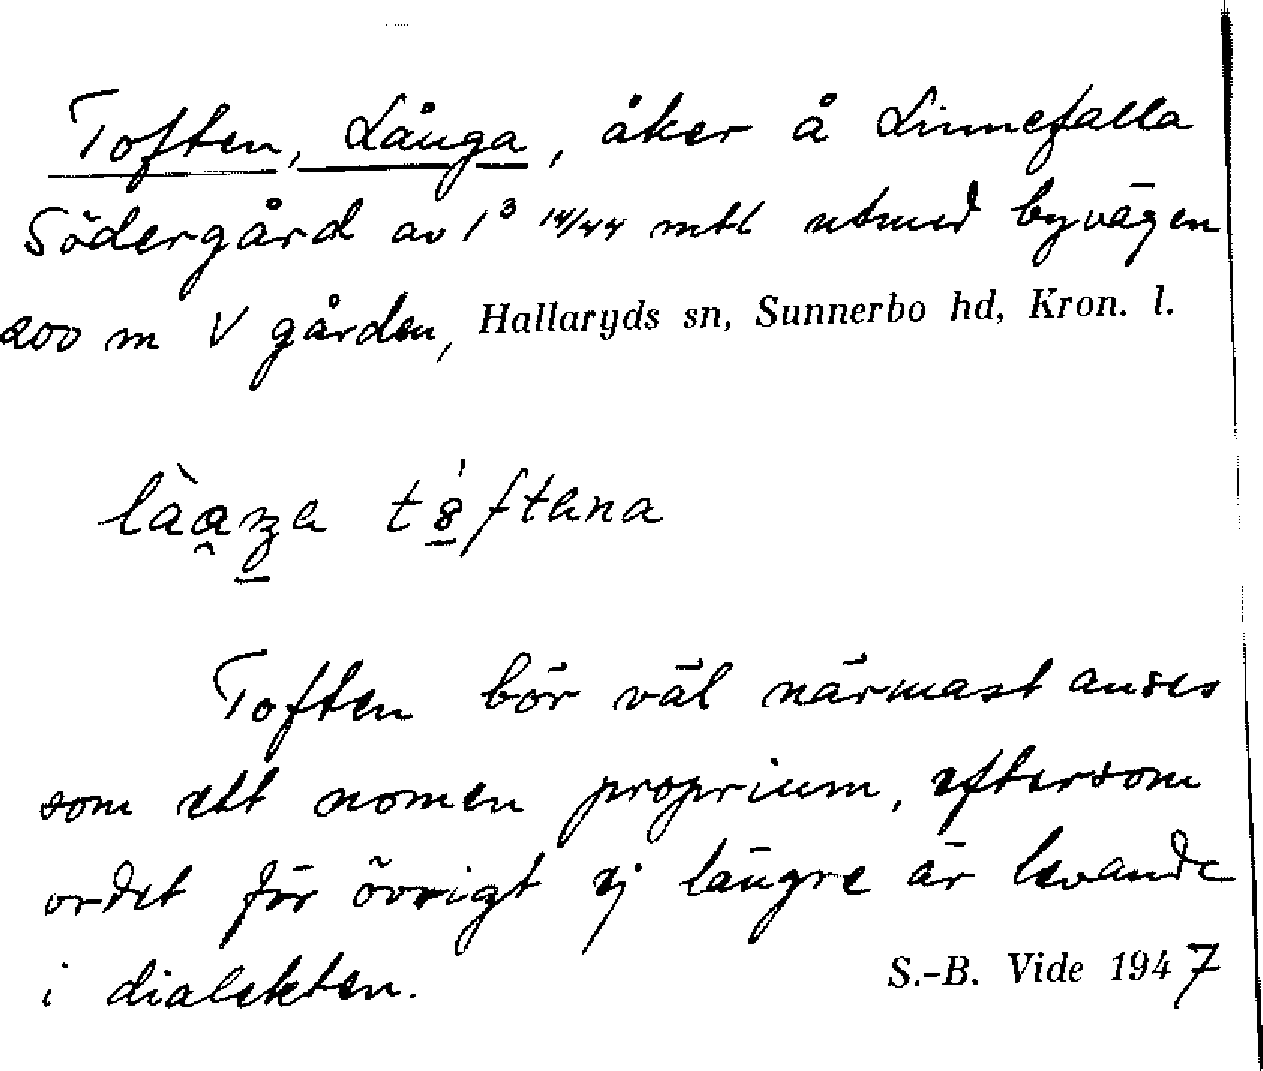 Toften, Långa, åker å Linnefalla
Södergård av 1³ 14/44 mtl utmed byvägen
200 m V gården, Hallaryds sn, Sunnerbo hd, Kron. l.
Toften bör väl närmast anses
som ett nomen proprium, eftersom
ordet för övrigt ej längre är levande
i dialekten.
S.-B. Vide 1947